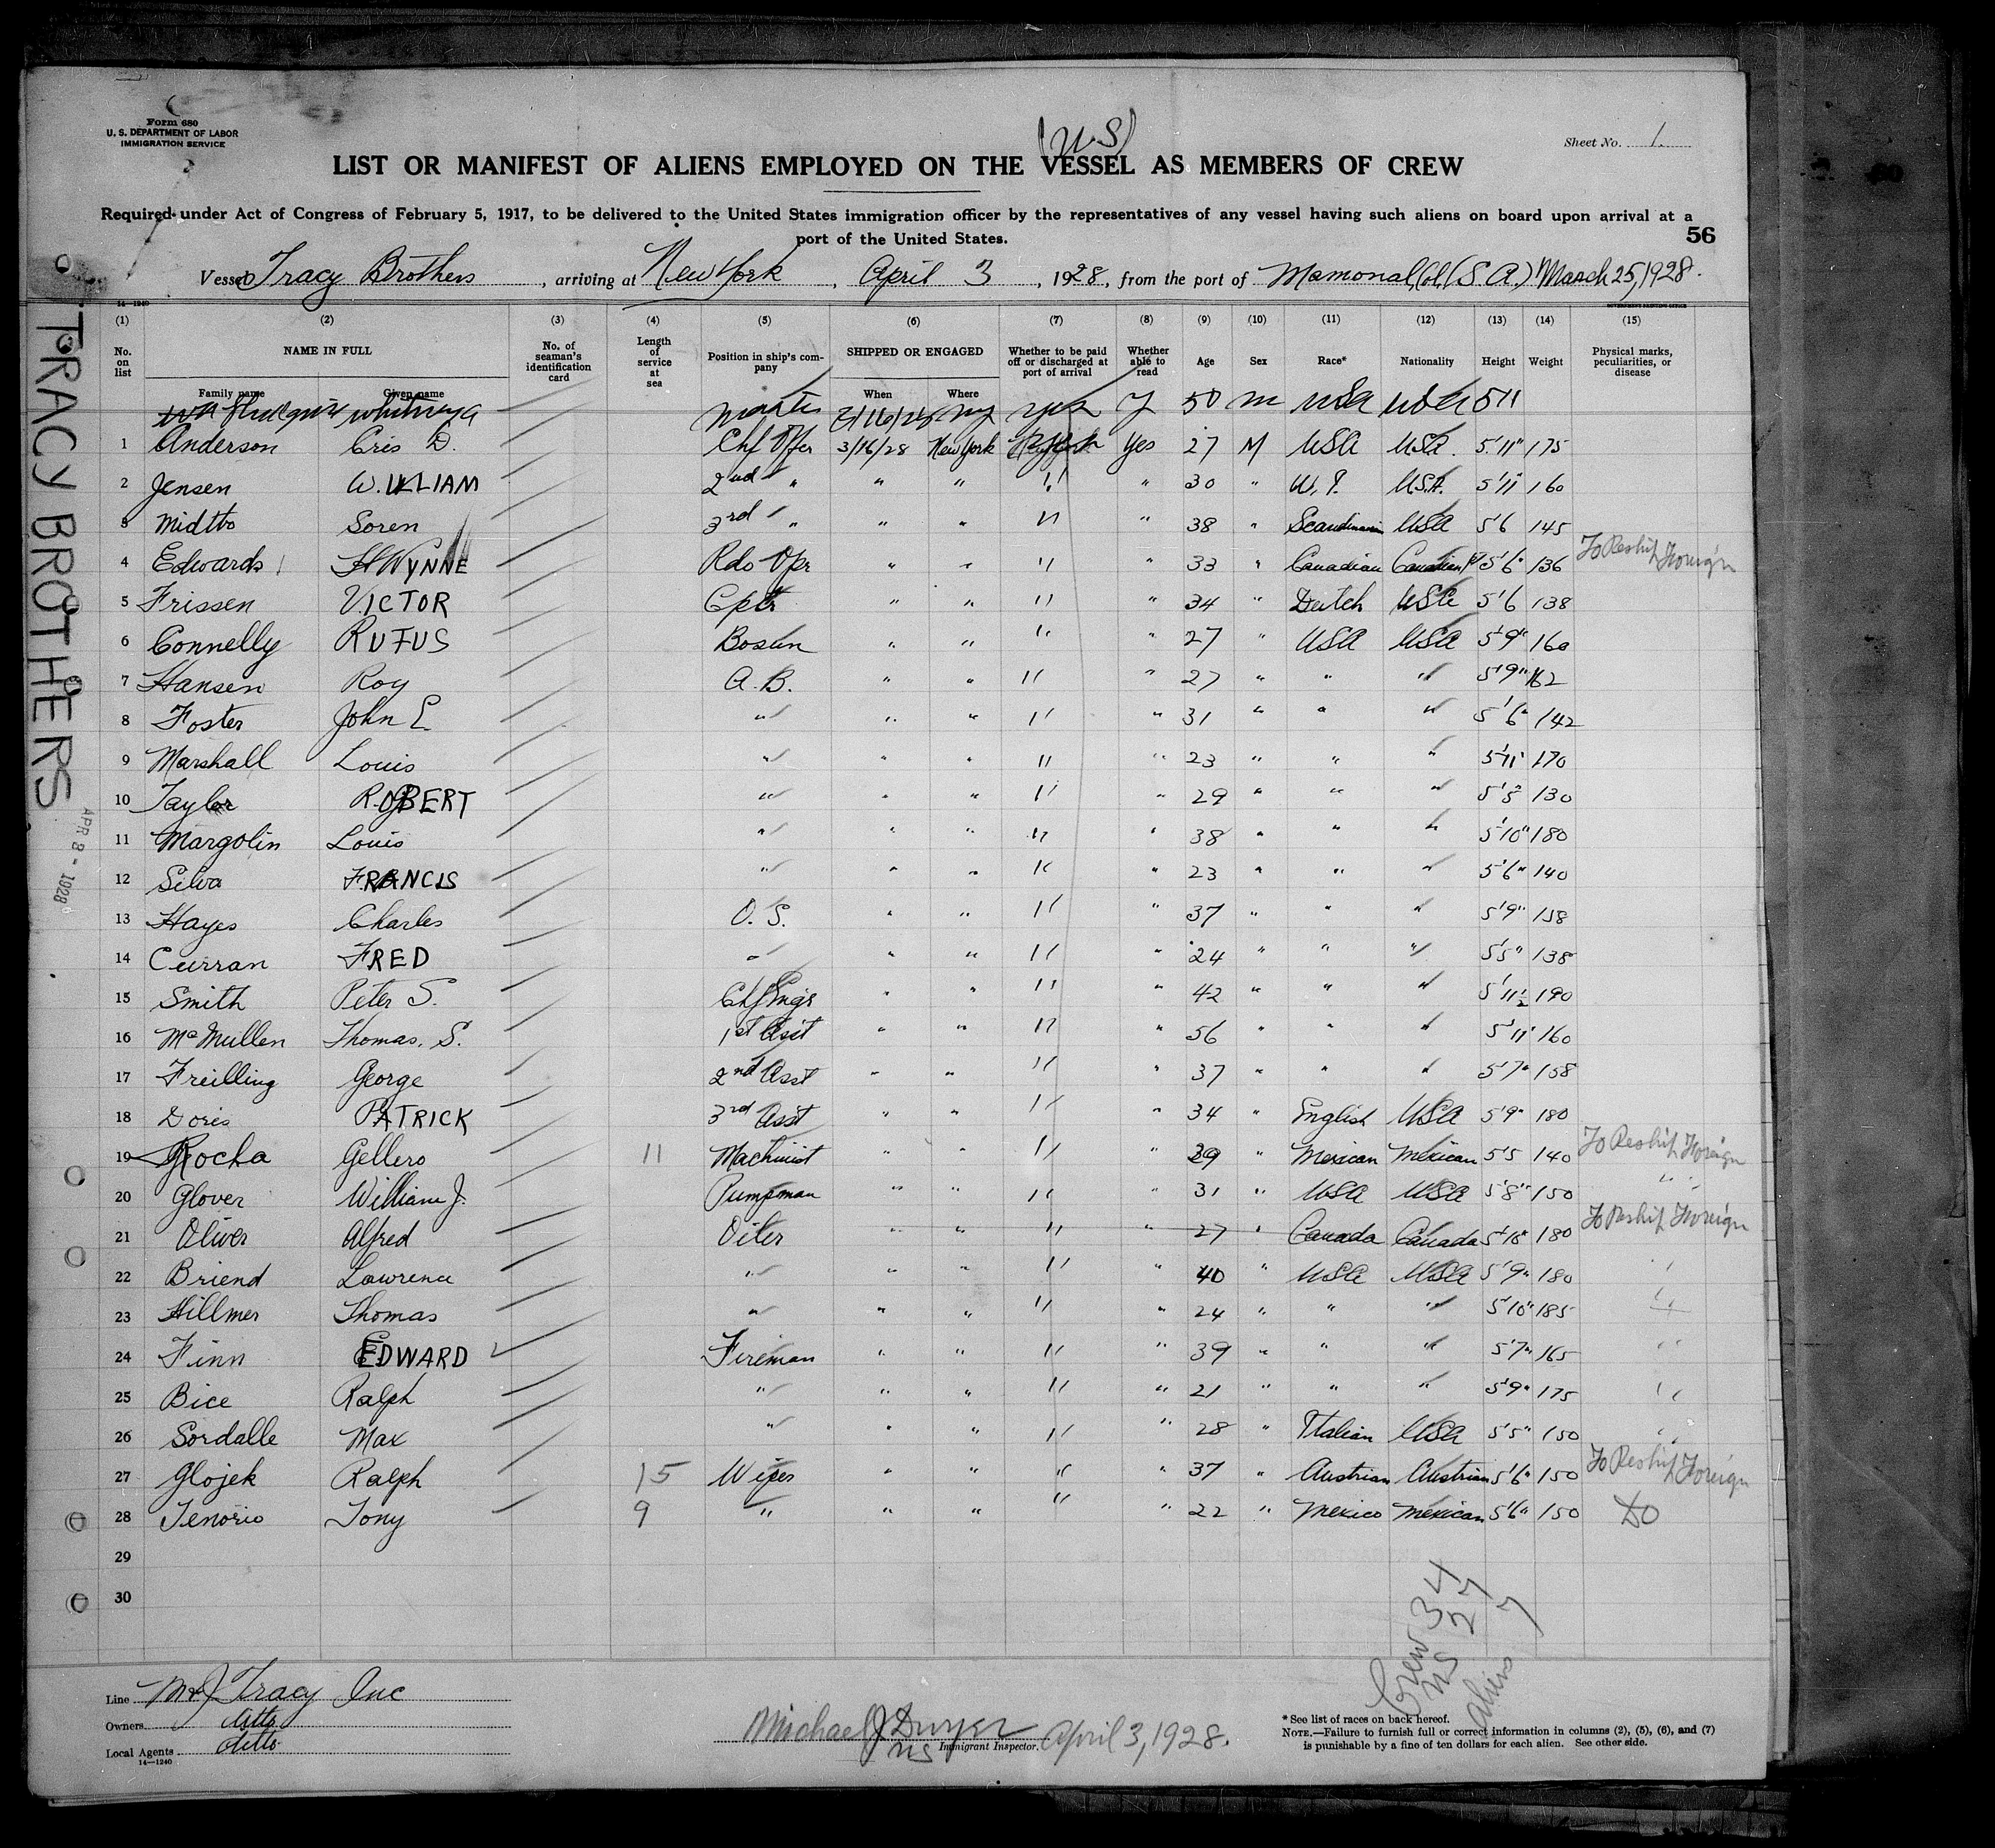 Form 680
U. S. DEPARTMENT OF LABOR
IMMIGRATION SERVICE
(U.S)
Sheet No. 1.
LIST OR MANIFEST OF ALIENS EMPLOYED ON THE VESSEL AS MEMBERS OF CREW
Required under Act of Congress of February 5, 1917, to be delivered to the United States immigration officer by the representatives of any vessel having such aliens on board upon arrival at a
port of the United States.
56
Vessel Tracy Brothers, arriving at New York, April 3, 1928, from the port of Mamonal, Col, (S.A.) March 25, 1928.
TRACY BROTHERS
APR 3 - 1928
14-1240 GOVERNMENT PRINTING OFFICE
(1) (2) (3) (4) (5) (6) (7) (8) (9) (10) (11) (12) (13) (14) (15)
No. on list NAME IN FULL No. of seaman's identification card Length of service at sea Position in ship's company SHIPPED OR ENGAGED Whether to be paid off or discharged at port of arrival Whether able to read Age Sex Race* Nationality Height Weight Physical marks, peculiarities, or disease
Family name Given name When Where
Master NY yes y 50 m USA USA 5 11
1 Anderson Cris D. Chf Offer 3/16/28 New York Yes 27 M USA USA. 5'11" 175
2 Jensen WILLIAM 2nd " " " " " 30 " W. I. U.S.A. 5'11" 160
3 Midtbo Soren 3rd " " " " " 38 " Scandinavian USA 5'6 145
4 Edwards WYNNE Rdo Opr " " " " 33 " Canadian Canadian 5'6" 136 To Reship Foreign
5 Frissen VICTOR Cptr " " " " 34 " Dutch USA 5'6 138
6 Connelly RUFUS Bosun " " " " 27 " USA USA 5'9" 160
7 Hansen Roy A. B. " " " " 27 " " " 5'9" 162
8 Foster John E " " " " " 31 " " " 5'6" 142
9 Marshall Louis " " " " " 23 " " " 5'11" 170
10 Taylor ROBERT " " " " " 29 " " " 5'5" 130
11 Margolin Louis " " " " " 38 " " " 5'10" 180
12 Silva FRANCIS " " " " " 23 " " " 5'6" 140
13 Hayes Charles O. S. " " " " 37 " " " 5'9" 158
14 Curran FRED " " " " " 24 " " " 5'5" 138
15 Smith Peter S. Chf Engr " " " " 42 " " " 5'11½ 190
16 McMullen Thomas. S. 1st Asst " " " " 56 " " " 5'11" 160
17 Freilling George 2nd Asst " " " " 37 " " " 5'7" 158
18 Doris PATRICK 3rd Asst " " " " 34 " English USA 5'9" 180
19 Rocha Gellero 11 Machinist " " " " 39 " Mexican Mexican 5'5 140 To Reship Foreign
20 Glover William J. Pumpman " " " " 31 " USA USA 5'8" 150 " "
21 Oliver Alfred Oiler " " " " 27 " Canada Canada 5'10" 180 To Reship Foreign
22 Briend Lawrence " " " " " 40 " USA USA 5'9" 180
23 Hillmer Thomas " " " " " 24 " " " 5'10" 185 "
24 Finn EDWARD Fireman " " " " 39 " " " 5'7" 165 "
25 Bice Ralph " " " " " 21 " " " 5'9" 175 "
26 Sordalle Max " " " " " 28 " Italian USA 5'5" 150 "
27 Glojek Ralph 15 Wiper " " " " 37 " Austrian Austrian 5'6" 150 To Reship Foreign
28 Tenorio Tony 9 " " " " " 22 " Mexico Mexican 5'6" 150 DO
29
30
Crew 34
US 27
Aliens 7
Line M & J Tracy Inc
Owners Ditto
Local Agents Ditto
14-1240
Michael J. Dwyer
NS Immigrant Inspector. April 3, 1928.
* See list of races on back hereof.
NOTE.—Failure to furnish full or correct information in columns (2), (5), (6), and (7)
is punishable by a fine of ten dollars for each alien. See other side.